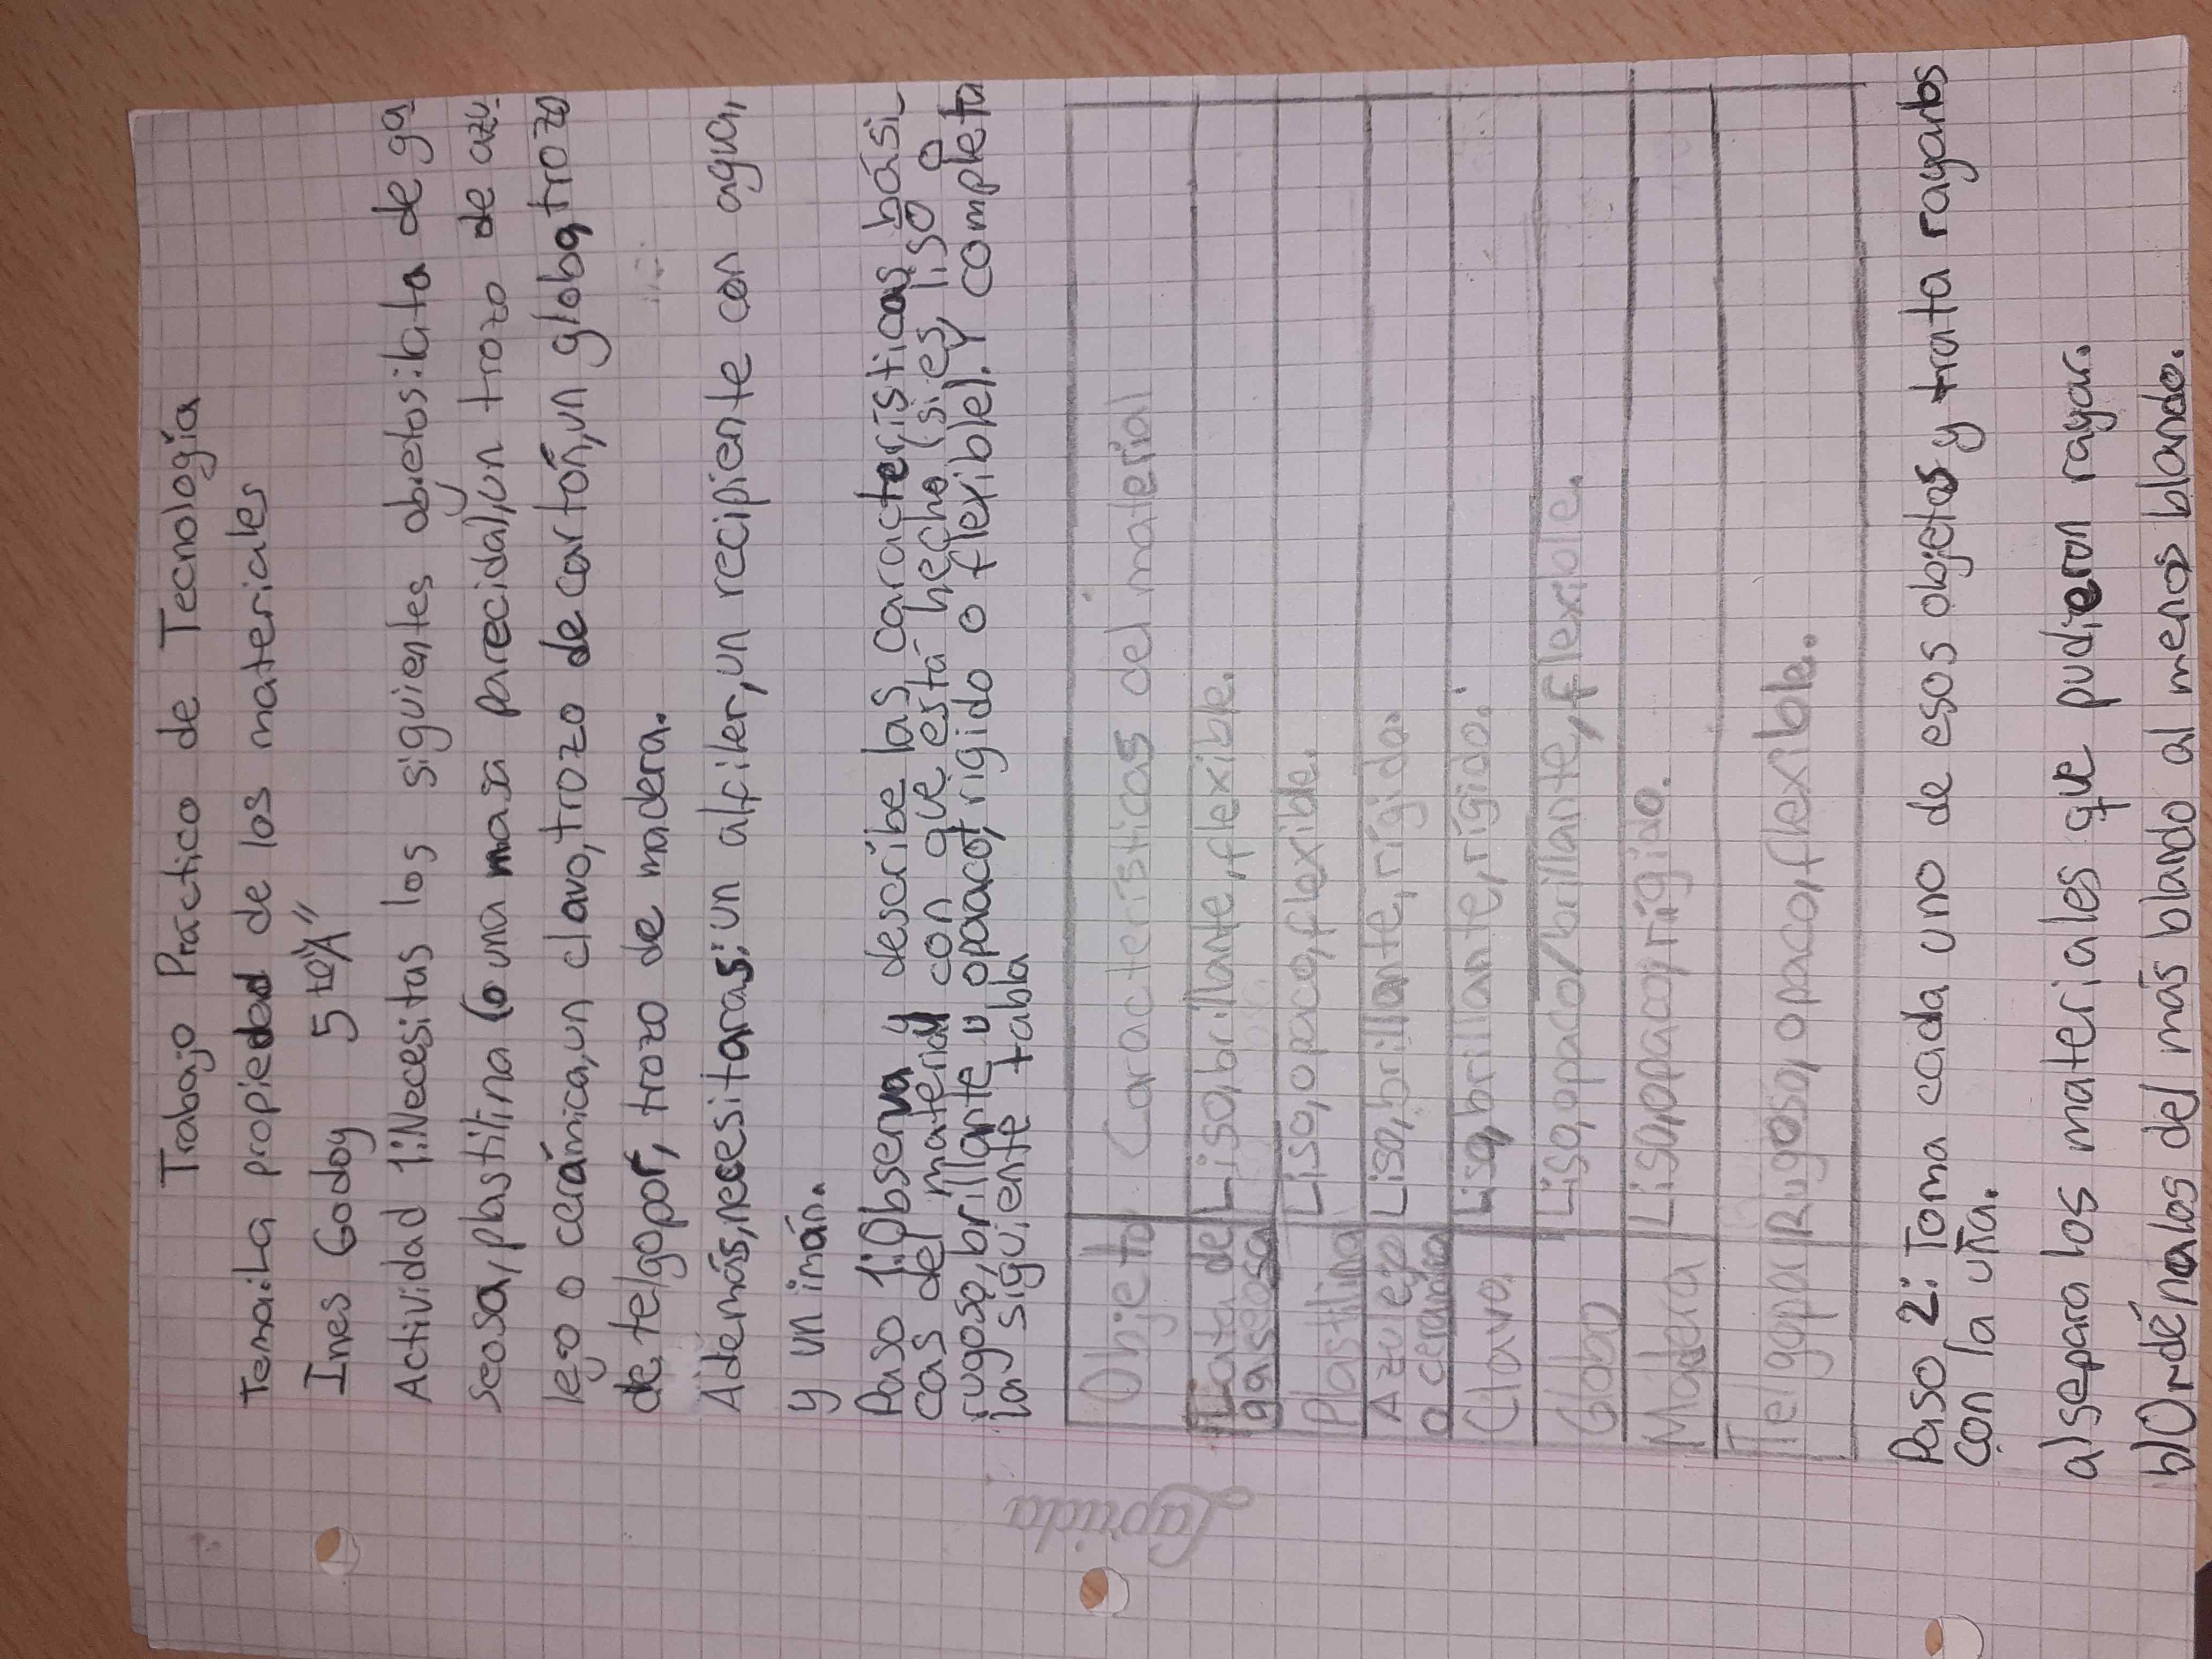 Trabajo Práctico de Tecnología
Tema:La propiedad de los materiales
Ines Godoy 5to"A"
Actividad 1:Necesitas los siguientes objetos:lata de ga
seosa,plastilina (o una masa parecida),un trozo de azu-
lejo o cerámica,un clavo,trozo de cartón,un globo,trozo
de telgopor, trozo de madera.
Además,necesitaras:un alfiler,un recipiente con agua,
y un imán.
Paso 1:Observa y describe las características bási-
cas del material con que está hecho (si es, liso o
rugoso,brillante u opaco,rigido o flexible). Y completa
la siguiente tabla
Objeto Características del material
Lata de gaseosa Liso,brillante,flexible.
Plastilina Liso,opaco,flexible.
Azulejo o cerámica Liso,brillante,rígido.
Clavo Liso,brillante,rígido.
Globo Liso,opaco/brillante,flexible.
Madera Liso,opaco,rígido.
Telgopor Rugoso,opaco,flexible.
Paso 2:Toma cada uno de esos objetos y trata rayarlos
con la uña.
a)separa los materiales que pudieron rayar.
b)Ordénalos del más blando al menos blando.
Laprida